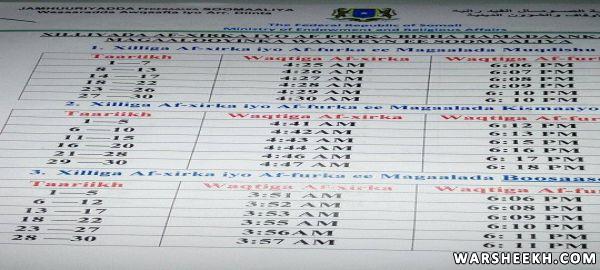 JAMHUURIYADDA SOOMAALIYA
The Federal Republic of Somali
Ministry of Endowment and Religious Affairs
XILLIYADA AF-XIRKA IYO AF-FURKA BISHA
1. Xilliga Af-xirka iyo Af-furka ee Magaalada Muqdisho
Taariikh Waqtiga Af-xirka Waqtiga Af-furka
1 — 7 4:25 AM 6:07 PM
8 — 13 4:26 AM PM
14 — 17 4:27 AM PM
18 — 22 4:28 AM 6:09 PM
23 — 26 4:29 AM 6:10 PM
27 — 30 4:30 AM 6:10 PM
2. Xilliga Af-xirka iyo Af-furka ee Magaalada Kismaayo
Taariikh Waqtiga Af-xirka Waqtiga Af-fur
1 — 5 4:41 AM 6:12 PM
6 — 10 4:42AM 6:13 PM
11 — 15 4:43 AM 6:15 PM
16 — 20 4:44 AM 6:16 PM
21 — 28 4:46 AM 6: 17 PM
29 — 30 4:47 AM 6: 18 PM
3. Xilliga Af-xirka iyo Af-furka ee Magaalada Boosaaso
Taariikh Waqtiga Af-xirka Waqtiga Af-fu
1 — 5 3:51 AM 6:06 PM
6 — 12 3:52 AM 6:08 PM
13 — 17 3:53 AM 6:09 PM
18 — 22 3:55 AM 6:10 PM
23 — 27 3:56AM 6: 11 PM
28 — 30 3:57 AM 6: 11 PM
WARSHEEKH.COM